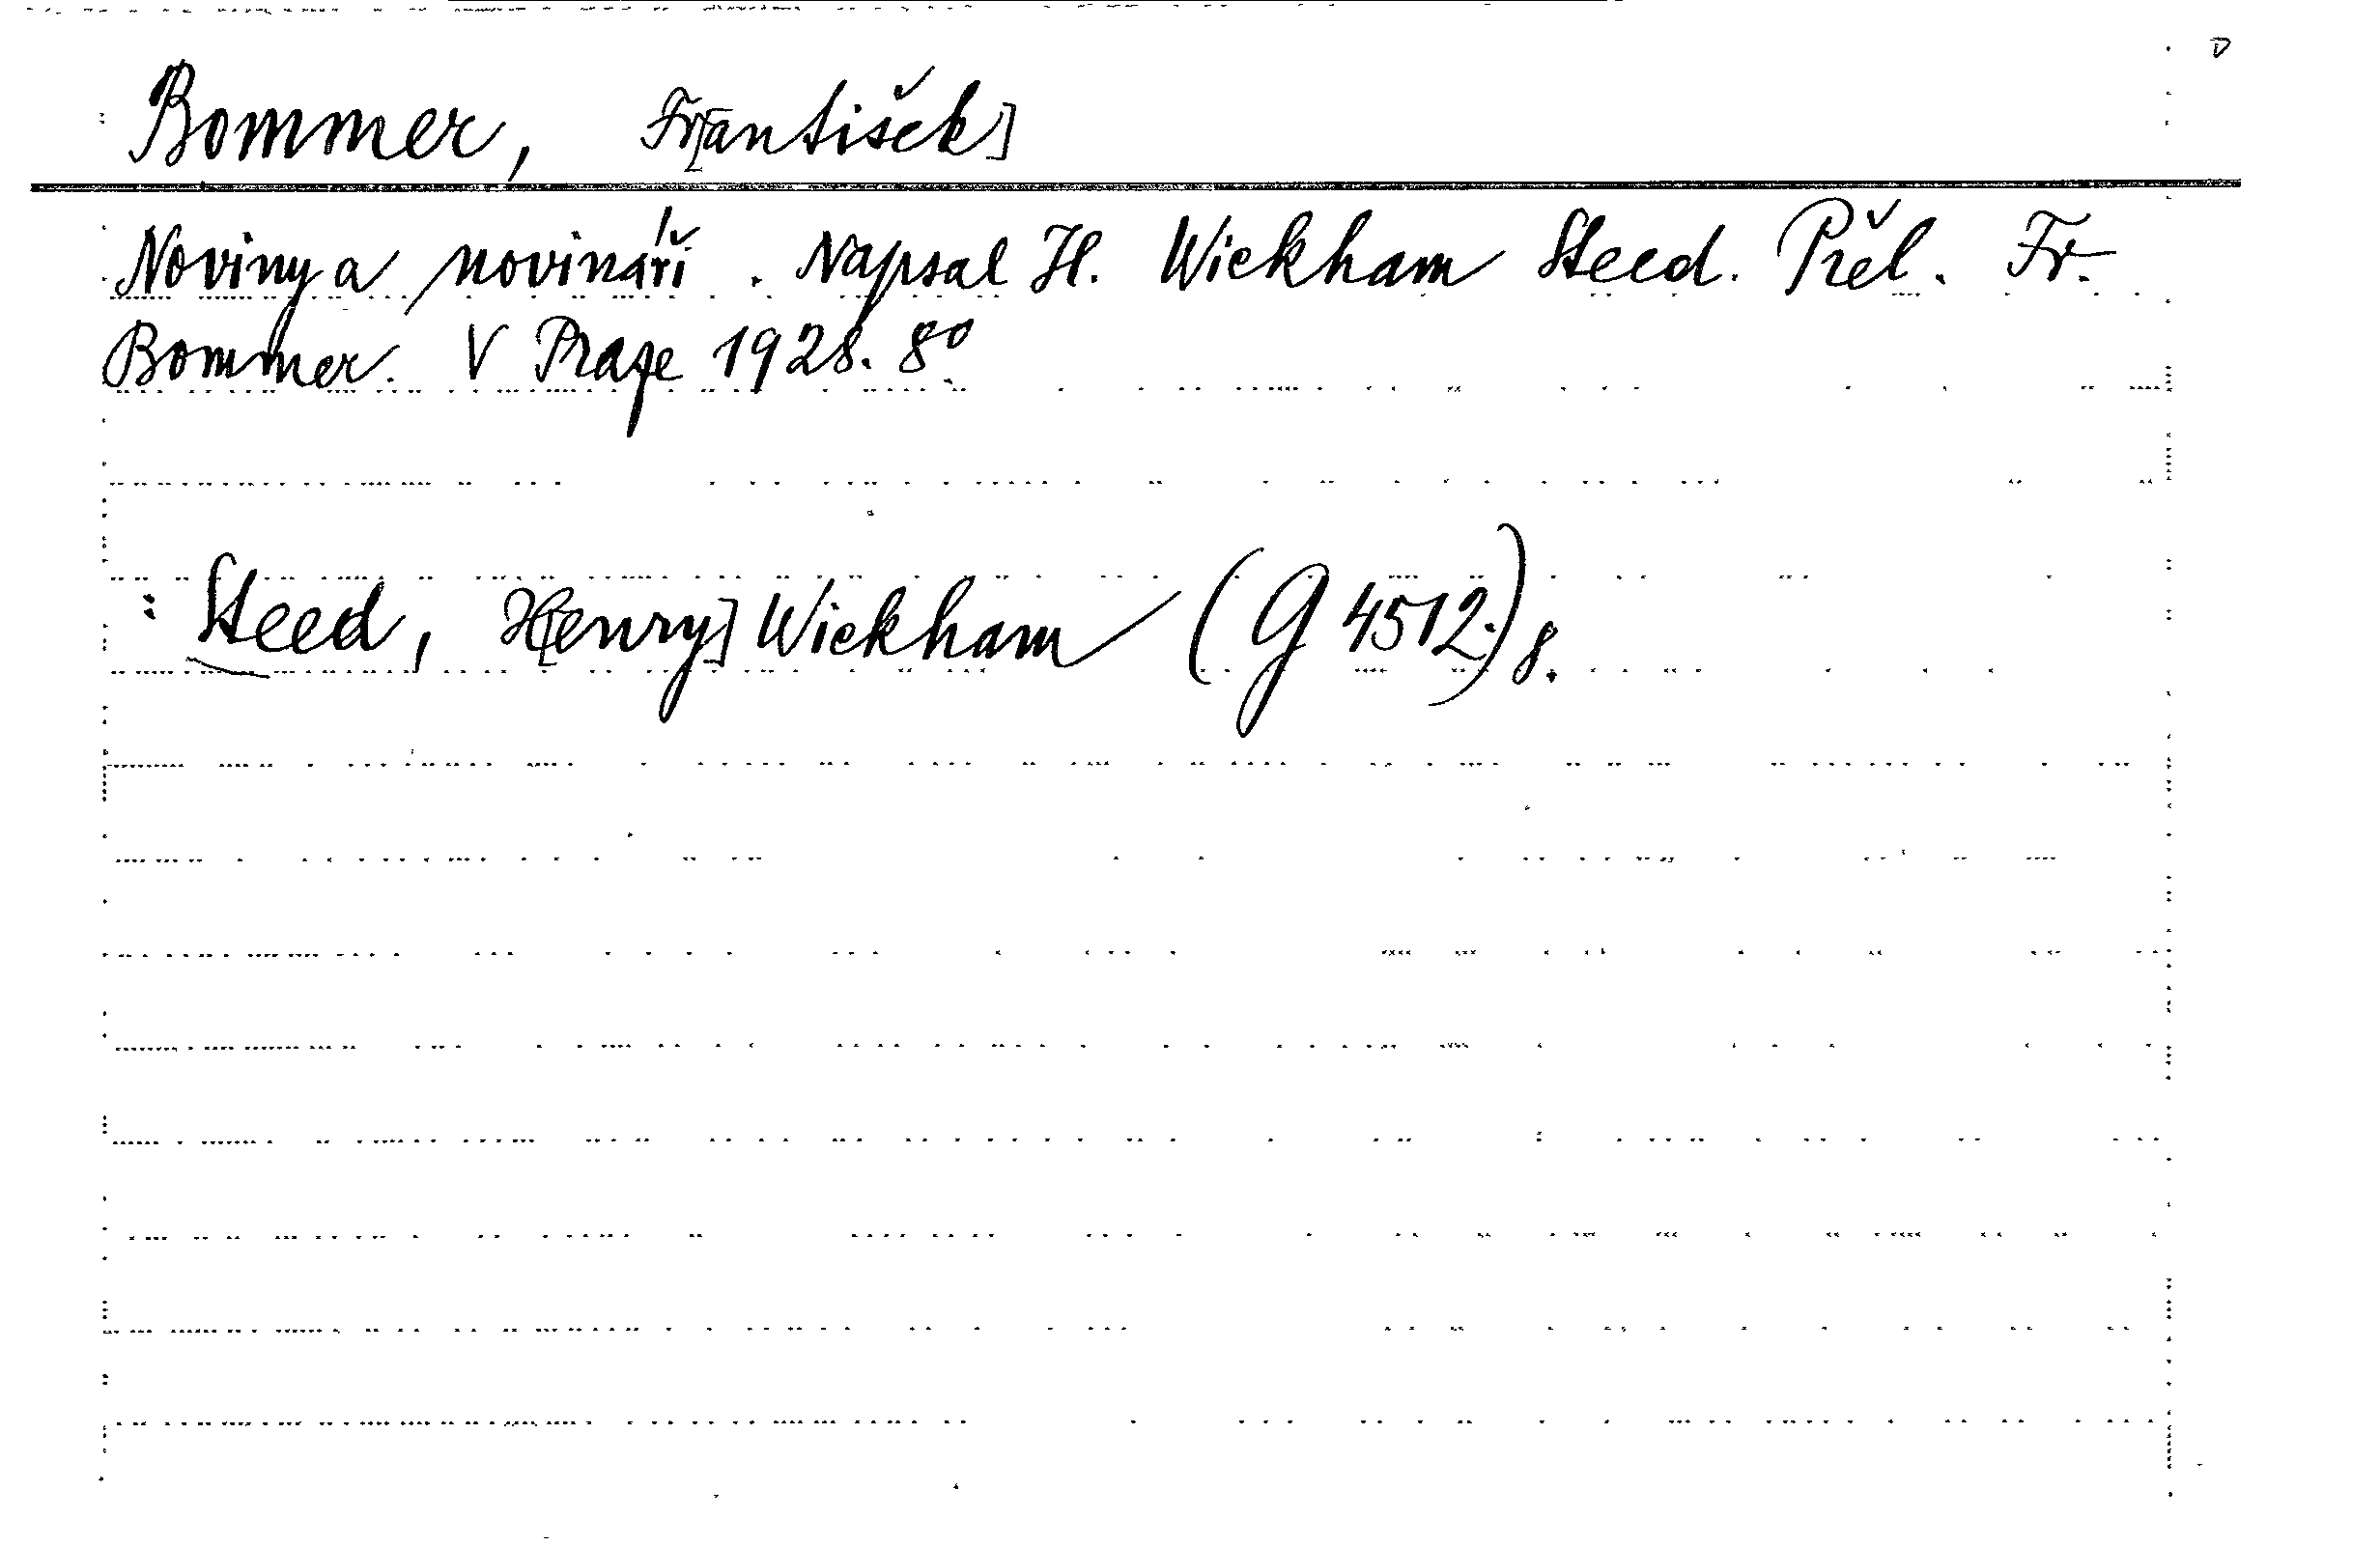 Bommer, Fr[antišek]
Noviny a novináři. Napsal H. Wickham Steed. Přel. Fr.
Bommer. V Praze 1928. 8°
: Steed, H[enry] Wickham (G 4512.) 8.